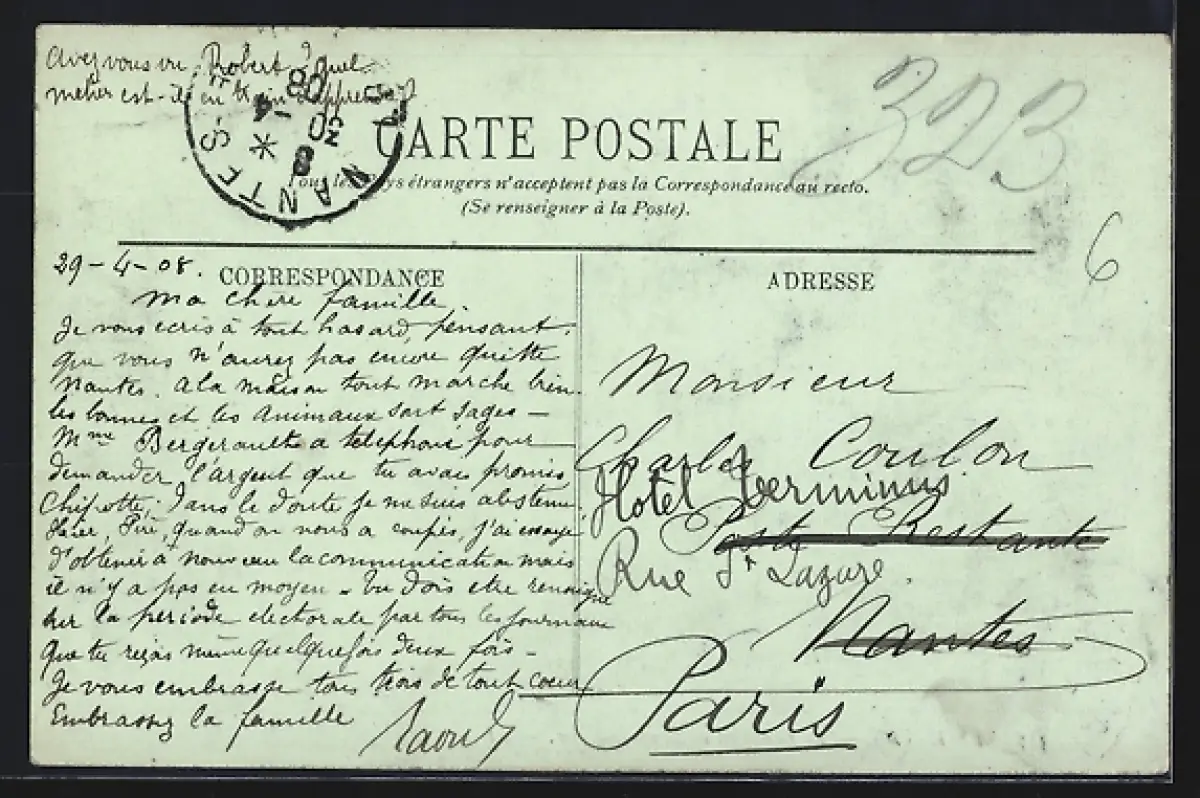 Avez vous vu Robert ? quel
métier est-il en train d'apprendre ?
NANTES
30
-4
08
323
CARTE POSTALE
Tous les pays étrangers n'acceptent pas la Correspondance au recto.
(Se renseigner à la Poste).
6
29-4-08.
CORRESPONDANCE
Ma chère famille.
Je vous ecris à tout hasard, pensant
que vous n'aurez pas encore quitté
Nantes. A la maison tout marche bien
les bonnes et les animaux sont sages -
Mme Bergerault a téléphoné pour
demander l'argent que tu avais promis
Chifotte; Dans le doute je me suis abstenu.
Hier, quand on nous a coupés, j'ai essayé
d'obtenir à nouveau la communication mais
il n'y a pas eu moyen - Tu dois etre renseigné
sur la période électorale par tous les journaux
que tu reçois même quelquefois deux fois -
Je vous embrasse tous trois de tout coeur
Embrassez la famille
Raoul
ADRESSE
Monsieur
Charles Coulon
Hotel Terminus
Poste Restante
Rue St Lazare.
Nantes
Paris